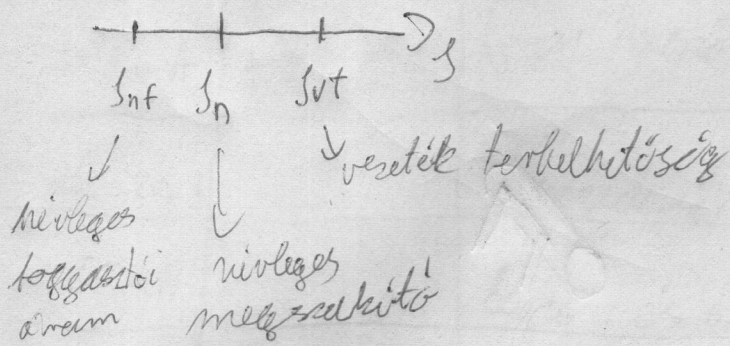 I
Inf In Ivt
vezeték terhelhetőség
névleges
fogyasztói névleges
áram megszakító